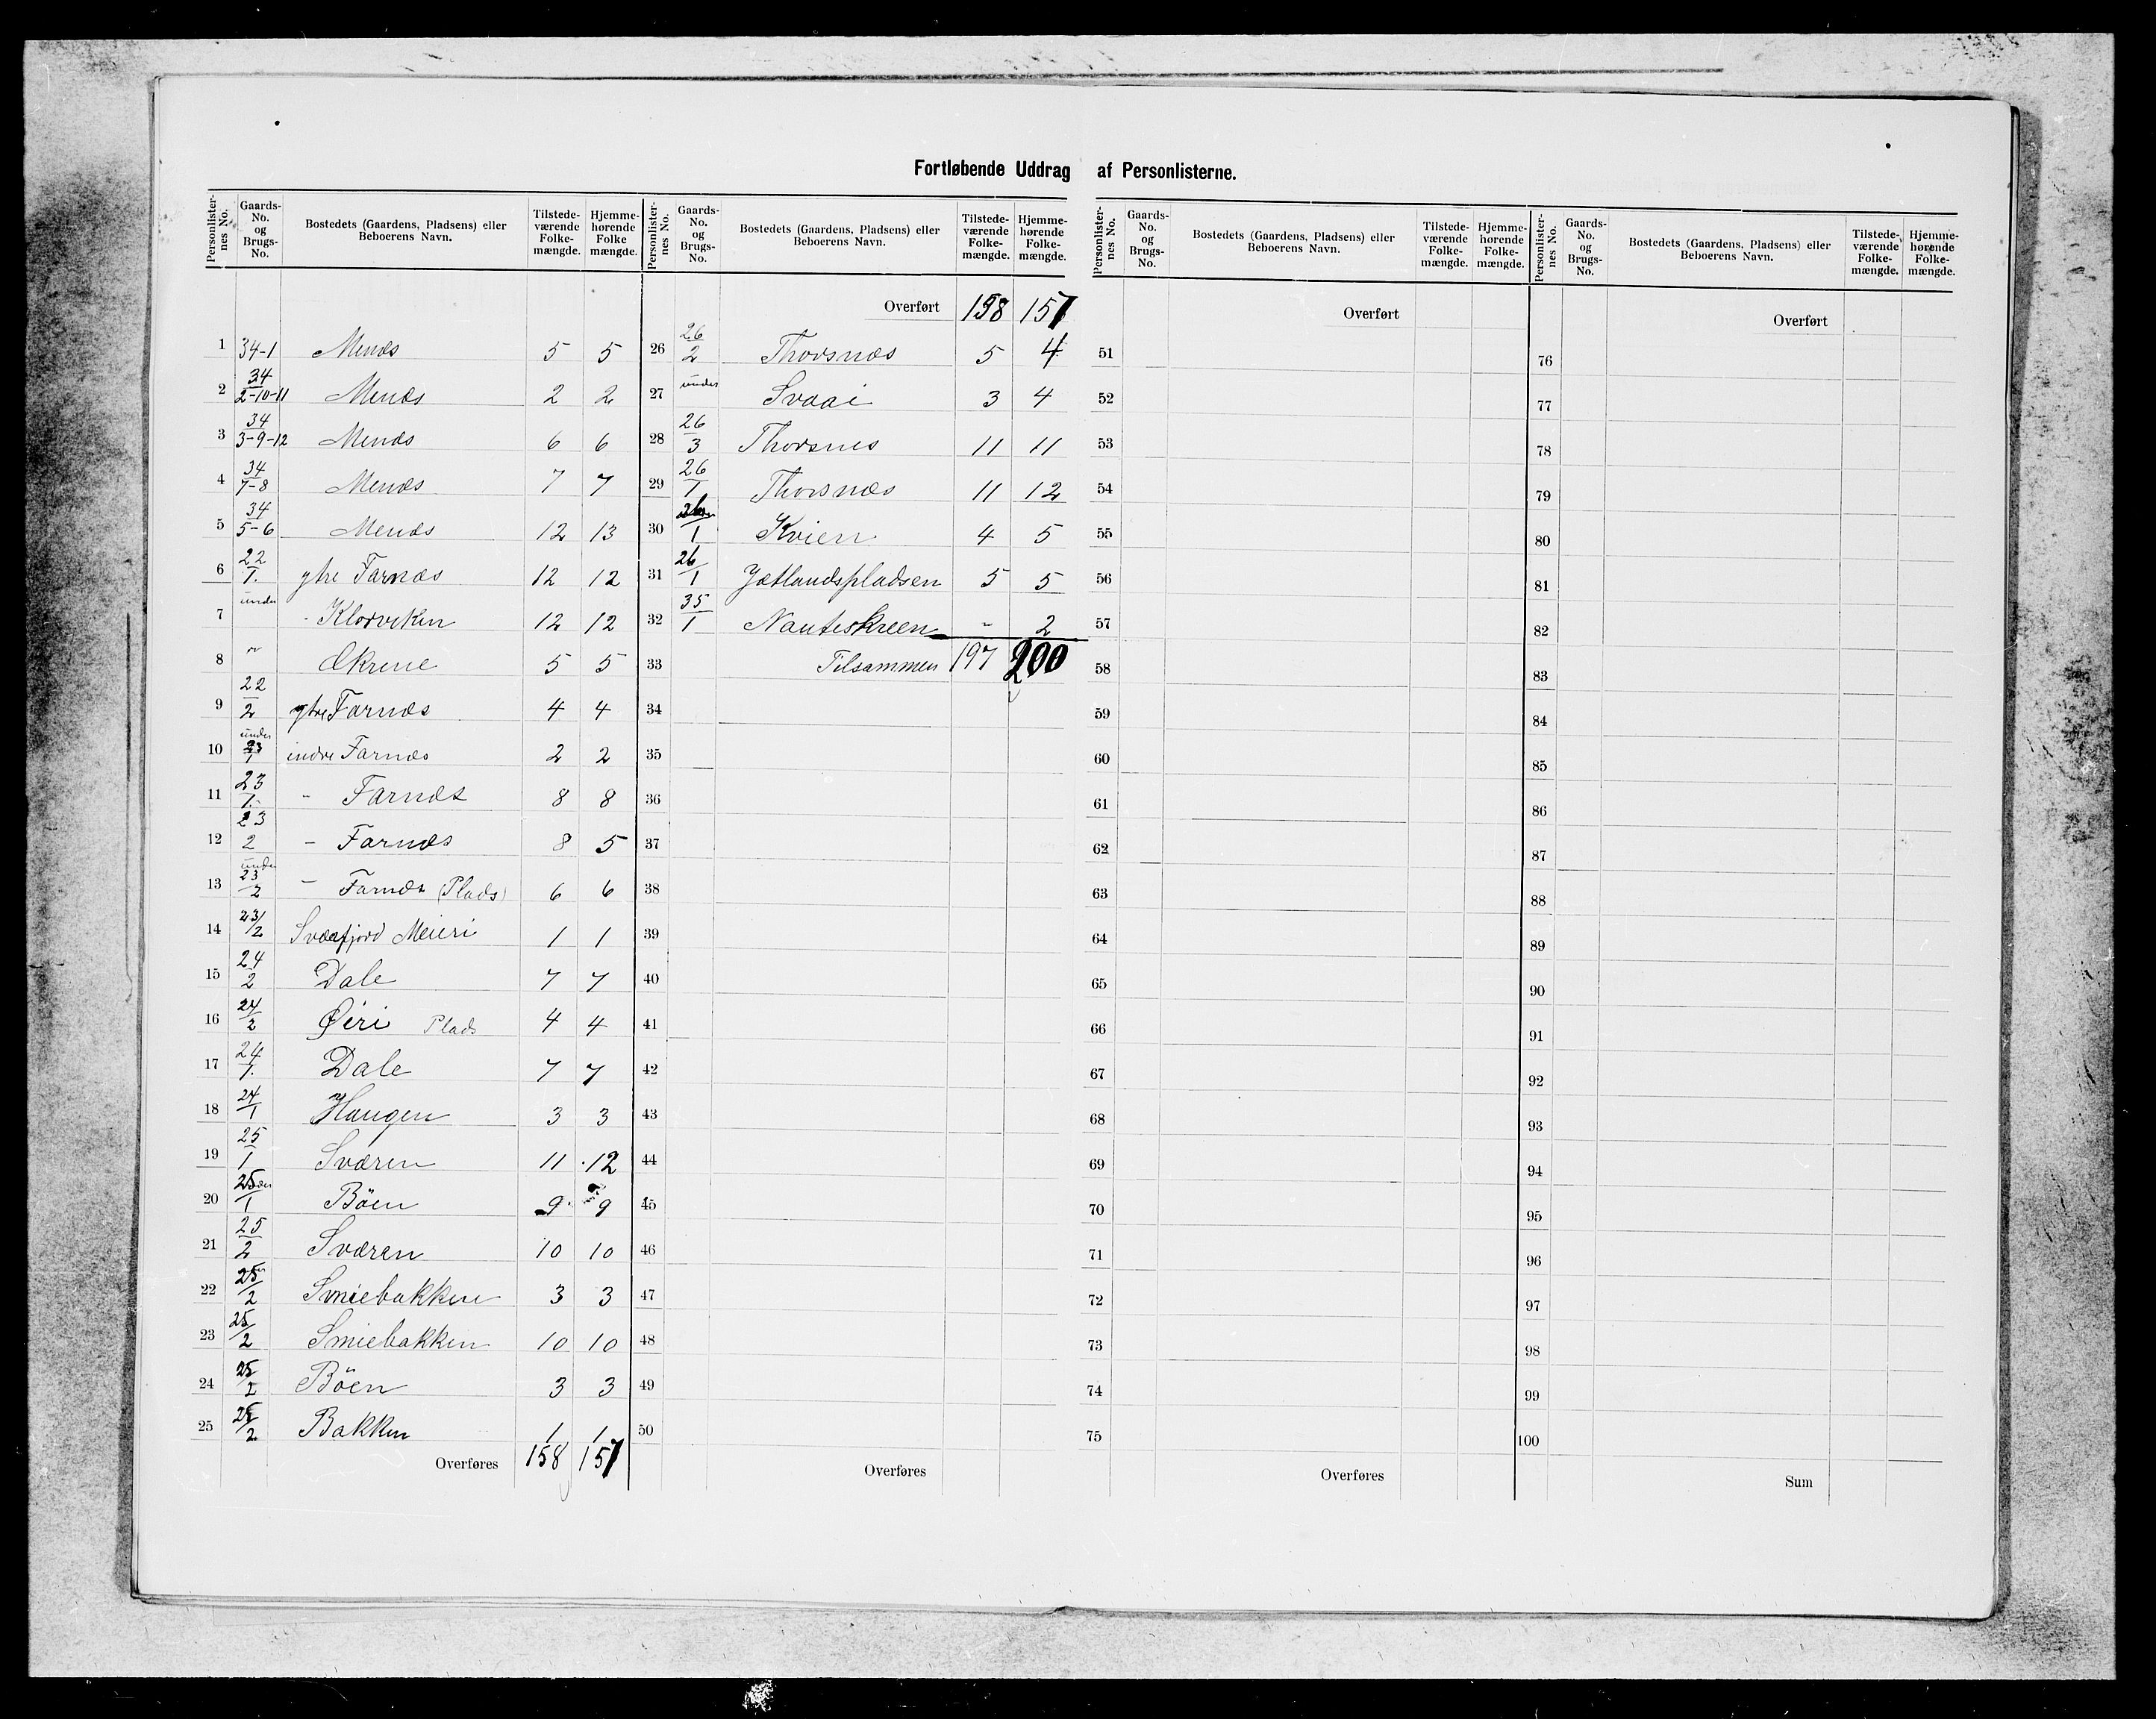 Fortløbende Uddrag af Personlisterne.
Personlisternes No. Gaards-No. og Brugs-No. Bostedets (Gaardens, Pladsens) eller Beboerens Navn. Tilstedeværende Folkemængde. Hjemmehørende Folkemængde.
1 34-1 Menæs 5 5
2 34/2-10-11 Menæs 2 2
3 34/3-9-12 Menæs 6 6
4 34/7-8 Menæs 7 7
5 34/5-6 Menæs 12 13
6 22/1. ytre Farnæs 12 12
7 under - Klorviken 12 12
8 " Ekrene 5 5
9 22/2 ytre Farnæs 4 4
10 under 23/1 indre Farnæs 2 2
11 23/1. - Farnæs 8 8
12 23/2 - Farnæs 8 5
13 under 23/2 - Farnæs (Plads) 6 6
14 23/2 Sværefjord Meieri 1 1
15 24/2 Dale 7 7
16 24/2 Øiri Plads 4 4
17 24/1. Dale 7 7
18 24/1 Haugen 3 3
19 25/1 Sværen 11 12
20 25/1 Böen 9 9
21 25/2 Sværen 10 10
22 25/2 Smiebakken 3 3
23 25/2 Smiebakken 10 10
24 25/2 Böen 3 3
25 25/2 Bakken 1 1
Overføres 158 157
Personlisternes No. Gaards-No. og Brugs-No. Bostedets (Gaardens, Pladsens) eller Beboerens Navn. Tilstedeværende Folkemængde. Hjemmehørende Folkemængde.
Overført 158 157
26 26/2 Thorsnæs 5 4
27 under Svaai 3 4
28 26/3 Thorsnes 11 11
29 26/1 Thorsnæs 11 12
30 26/1 Kvien 4 5
31 26/1 Jætlandspladsen 5 5
32 35/1 Nauteskreen - 2
33 Tilsammen 197 200
34
35
36
37
38
39
40
41
42
43
44
45
46
47
48
49
50
Overføres
Personlisternes No. Gaards-No. og Brugs-No. Bostedets (Gaardens, Pladsens) eller Beboerens Navn. Tilstedeværende Folkemængde. Hjemmehørende Folkemængde.
Overført
51
52
53
54
55
56
57
58
59
60
61
62
63
64
65
66
67
68
69
70
71
72
73
74
75
Overføres
Personlisternes No. Gaards-No. og Brugs-No. Bostedets (Gaardens, Pladsens) eller Beboerens Navn. Tilstedeværende Folkemængde. Hjemmehørende Folkemængde.
Overført
76
77
78
79
80
81
82
83
84
85
86
87
88
89
90
91
92
93
94
95
96
97
98
99
100
Sum